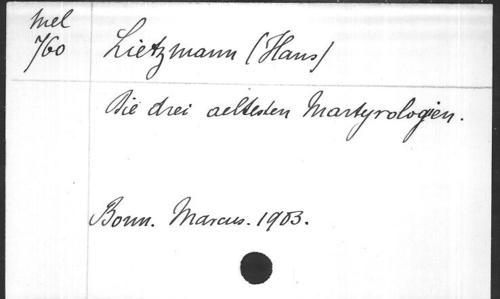 Mel
760
Lietzmann (Hans)
Die drei aeltesten Martyrologien.
Bonn. Marcus. 1903.